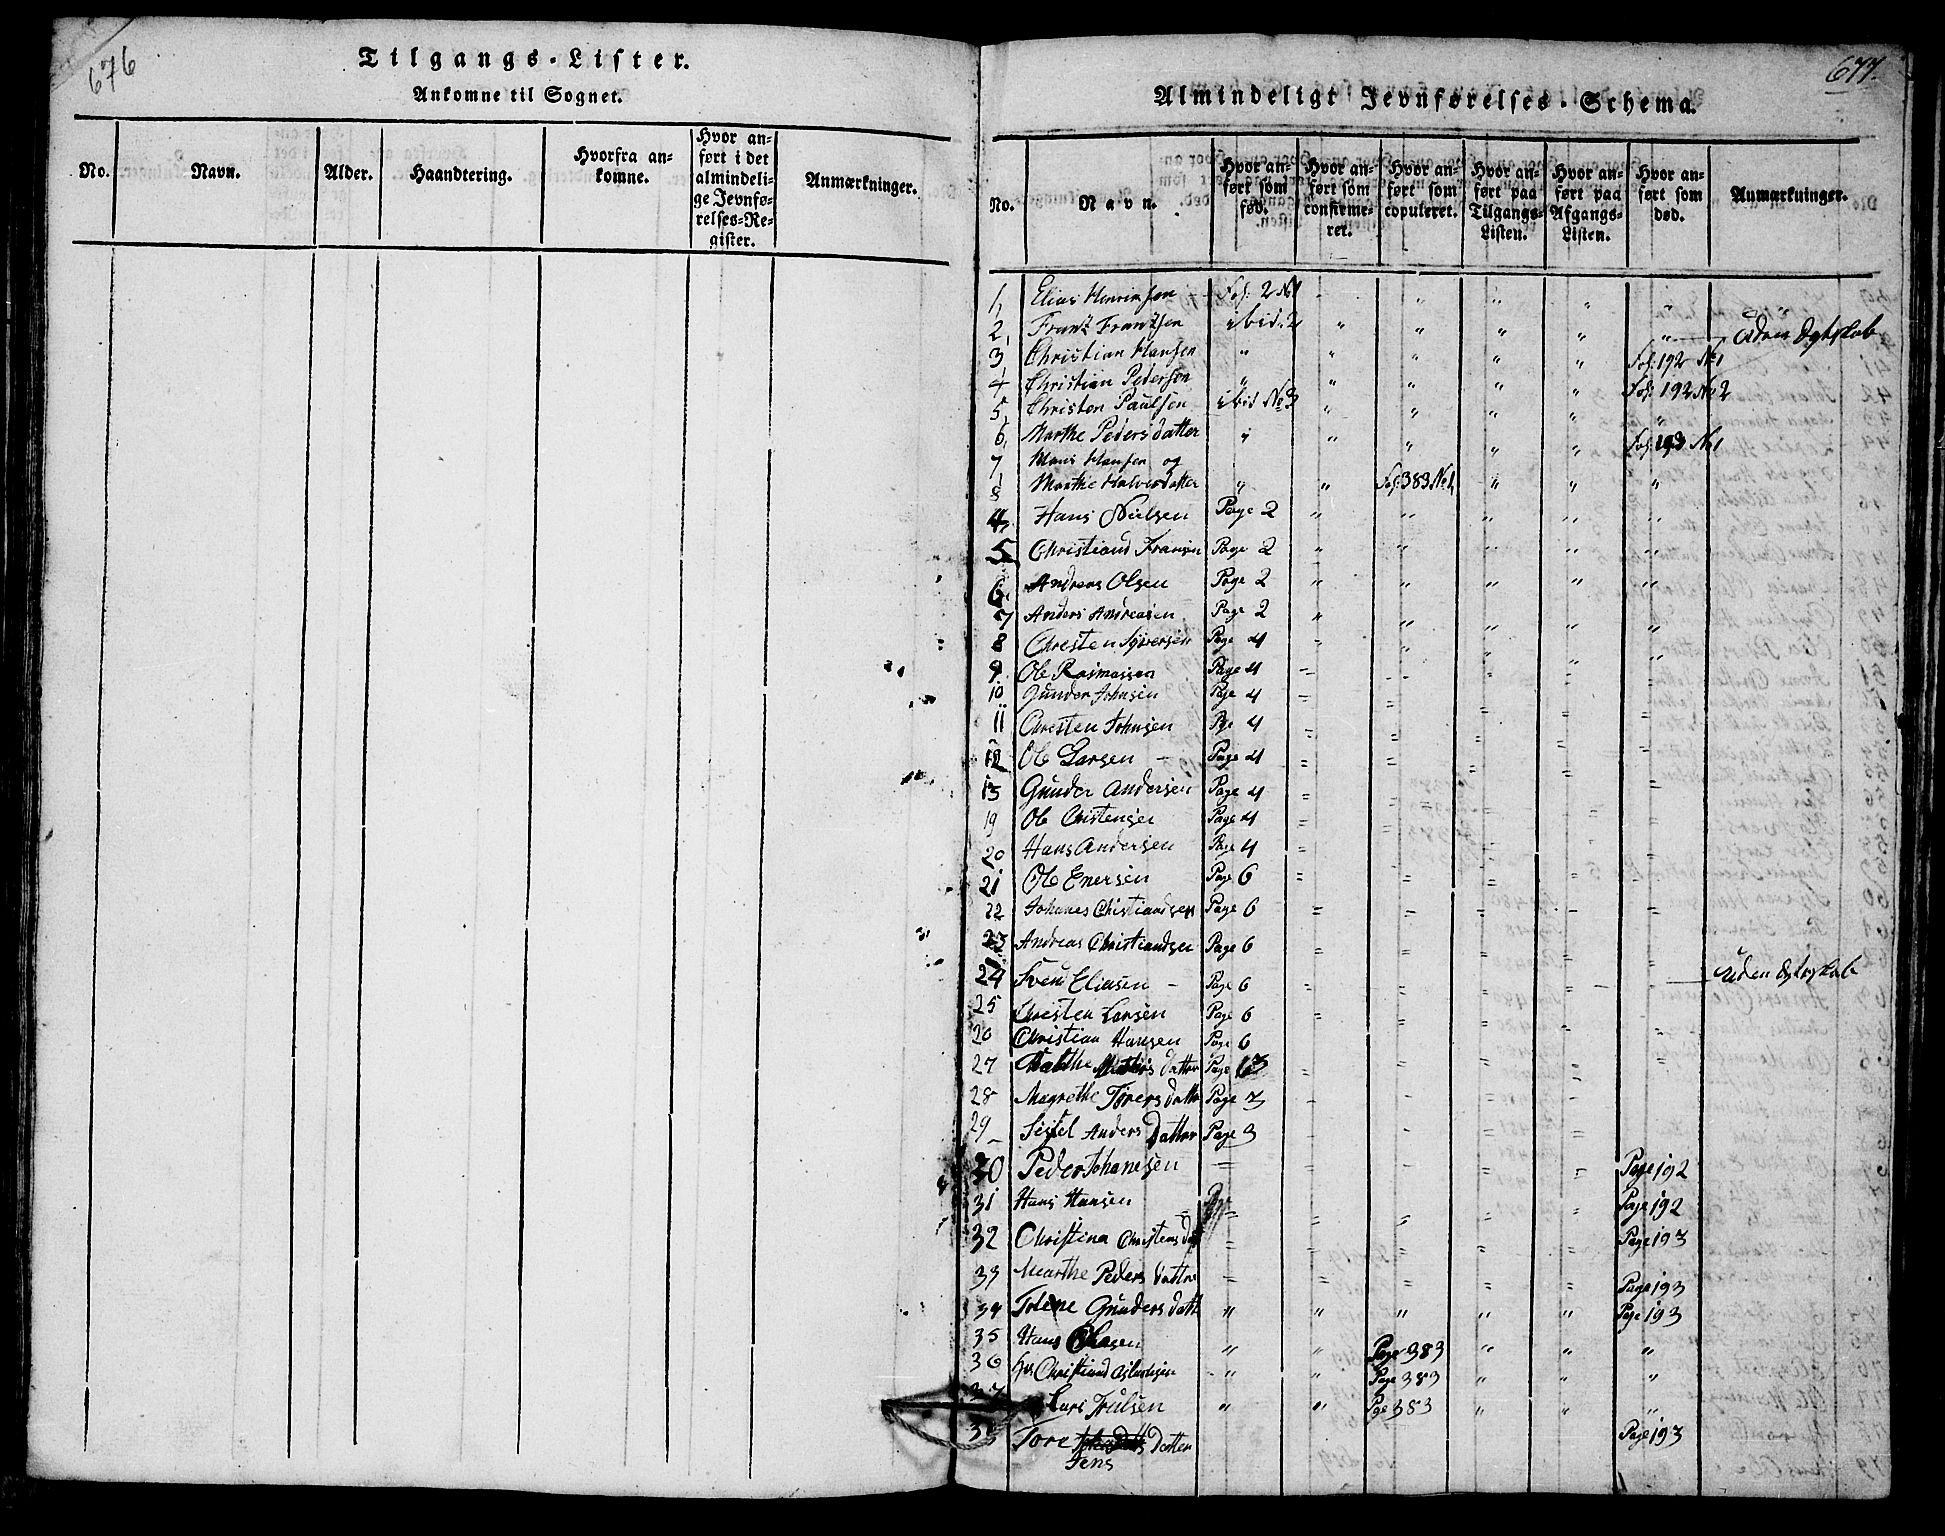 676
Tilgangs-Lister.
Ankomne til Sognet.
No. Navn. Alder. Haandtering. Hvorfra ankomne. Hvor anført i det almindelige Jevnførelses-Register. Anmærkninger.
677.
Almindeligt Jevnførelses-Schema.
No. Navn. Hvor anført som fød. Hvor anført som confirmeret. Hvor anført som copuleret. Hvor anført paa Tilgangs-Listen. Hvor anført paa Afgangs-Listen. Hvor anført som død. Anmærkninger.
1, Elias Hinrimsen Fol: 2 No 1 " " " "
2, Frantz Frantzsen ibid: 2 " " " " "
3, Christian Hansen " " " " " Fol: 192 No 1
4, Christian Pedersen " " " " " Fol: 192 No 2
5, Christen Paulsen ibid No 3 " " " " "
6, Marthe Pedersdatter " " " " " Fol: 193 No 1
7, Hans Hansen og
8 Marthe Halvorsdatter " " Fol: 383 No 1, " " "
4, Hans Nielsen Page 2 " " " " "
5 Christiand Fransen Page 2 " " " " "
6. Andreas Olsen Page 2 " " " " "
7 Anders Andreasen Page 2 " " " " "
8 Chresten Syversen Page 4 " " " " "
9. Ole Rasmassen Page 4 = = = = =
10 Gunder Johnsen Page 4 = = = = =
11 Chresten Johnsen Page 4 = = = = =
12 Ole Larsen – Page 4 = = = = =
13 Gunder Andersen Page 4 = = = = =
19 Ole Christensen Page 4 = = = = =
20 Hans Andersen Page 4 = = = = =
21 Ole Enersen Page 6 = = = = =
22 Johanes Christiandsen Page 6 = = = = =
23 Andreas Christiandsen Page 6 = = = = =
24 Svend Eliasen – Page 6 = = = – – Uden
25 Chresten Larsen Page 6 = = = = =
26 Christian Hansen Page 6 = = = = =
27 Malthe datter Page 3 = = = = =
28 Magrethe Torersdatter Page 3 - - = =
29 Sissel Anders Datter Page 3 - - = =
30 Peder Johanesen = = = = = Page 192
31 Hans Hansen = = = = = Page 192
32 Christina Christens datt = = = = = Page 193
33 Marthe Peders datter = = = = = Page 193
34 Tolene Gunders datt " " " " " Page 193
35 Hans Olasen " " Page 383 " " "
36 Hr Christiand " " Page 383 " " "
37 Lars Trulsen " " Page 383 " " "
38 Tore datter Page 193
Jens